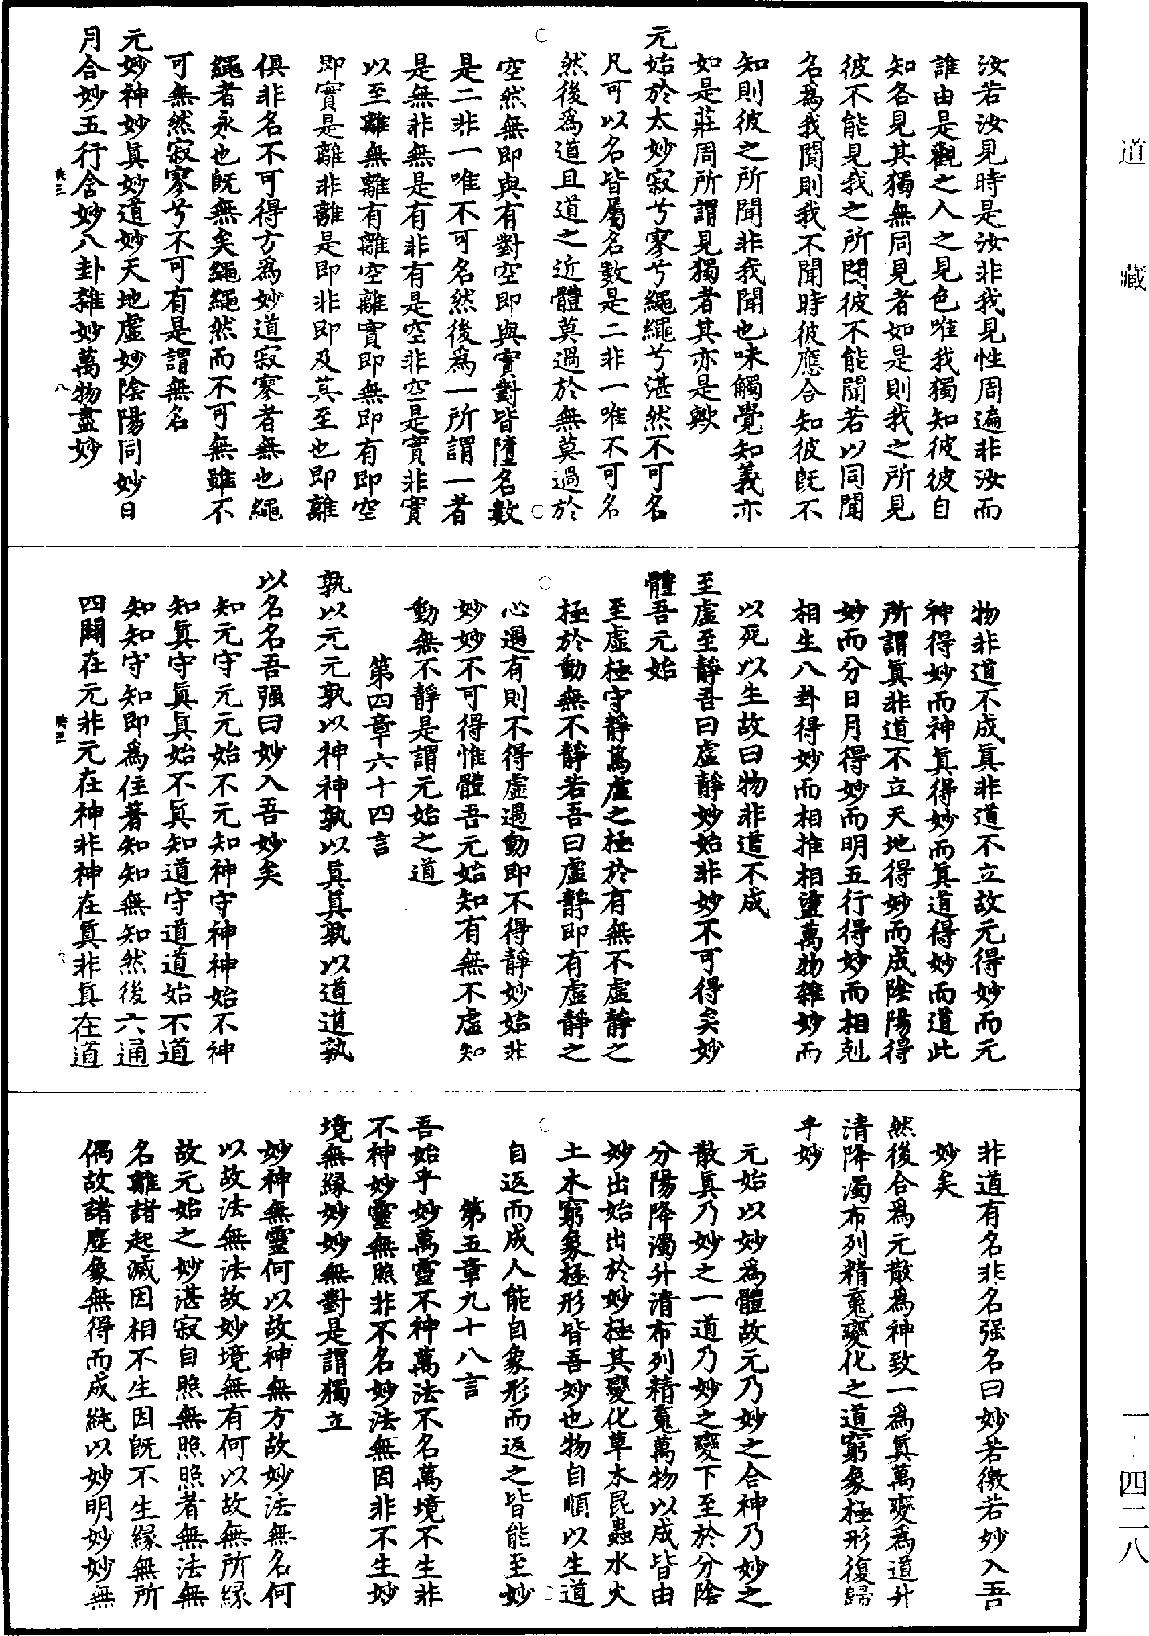 道藏
汝若汝見時是汝非我見性周遍非汝而
誰由是觀之人之見色唯我獨知彼彼自
知各見其獨無同見者如是則我之所見
彼不能見我之所聞彼不能聞若以同聞
名為我聞則我不聞時彼應合知彼既不
知則彼之所聞非我聞也味觸覺知義亦
如是莊周所謂見獨者其亦是歟
元始於太妙寂兮寥兮繩繩兮湛然不可名
凡可以名皆屬名數是二非一唯不可名
然後為道且道之近體莫過於無莫過於
空然無即與有對空即與實對皆墮名數
是二非一唯不可名然後為一所謂一者
是無非無是有非有是空非空是實非實
以至離無離有離空離實即無即有即空
即實是離非離是即非即及其至也即離
俱非名不可得方為妙道寂寥者無也繩
繩者永也既無矣繩繩然而不可無雖不
可無然寂寥兮不可有是謂無名
元妙神妙真妙道妙天地虛妙陰陽同妙日
月合妙五行含妙八卦雜妙萬物盡妙
物非道不成真非道不立故元得妙而元
神得妙而神真得妙而真道得妙而道此
所謂真非道不立天地得妙而成陰陽得
妙而分日月得妙而明五行得妙而相剋
相生八卦得妙而相推相盪萬物雜妙而
以死以生故曰物非道不成
至虛至靜吾曰虛靜妙始非妙不可得矣妙
體吾元始
至虛極守靜篤虛之極於有無不虛靜之
極於動無不靜若吾曰虛靜即有虛靜之
心過有則不得虛過動即不得靜妙始非
妙妙不可得惟體吾元始知有無不虛知
動無不靜是謂元始之道
第四章六十四言
孰以元元孰以神神孰以真真孰以道道孰
以名名吾强曰妙入吾妙矣
知元守元元始不元知神守神神始不神
知真守真真始不真知道守道道始不道
知知守知即為住著知知無知然後六通
四闢在元非元在神非神在真非真在道
非道有名非名强名曰妙若徼若妙入吾
妙矣
然後合為元散為神致一為真萬變為道升
清降濁布列精䰟變化之道窮象極形復歸
乎妙
元始以妙為體故元乃妙之合神乃妙之
散真乃妙之一道乃妙之變下至於分陰
分陽降濁升清布列精䰟萬物以成皆由
妙出始出於妙極其變化草木昆蟲水火
土木窮象極形皆吾妙也物自順以生道
自返而成人能自象形而返之皆能至妙
第五章九十八言
吾始乎妙萬靈不神萬法不名萬境不生非
不神妙靈無照非不名妙法無因非不生妙
境無緣妙妙無對是謂獨立
妙神無靈何以故神無方故妙法無名何
以故法無法故妙境無有何以故無所緣
故元始之妙湛寂自照無照照者無法無
名離諸起滅因相不生因既不生緣無所
偶故諸塵象無得而成純以妙明妙妙無
一·四二八